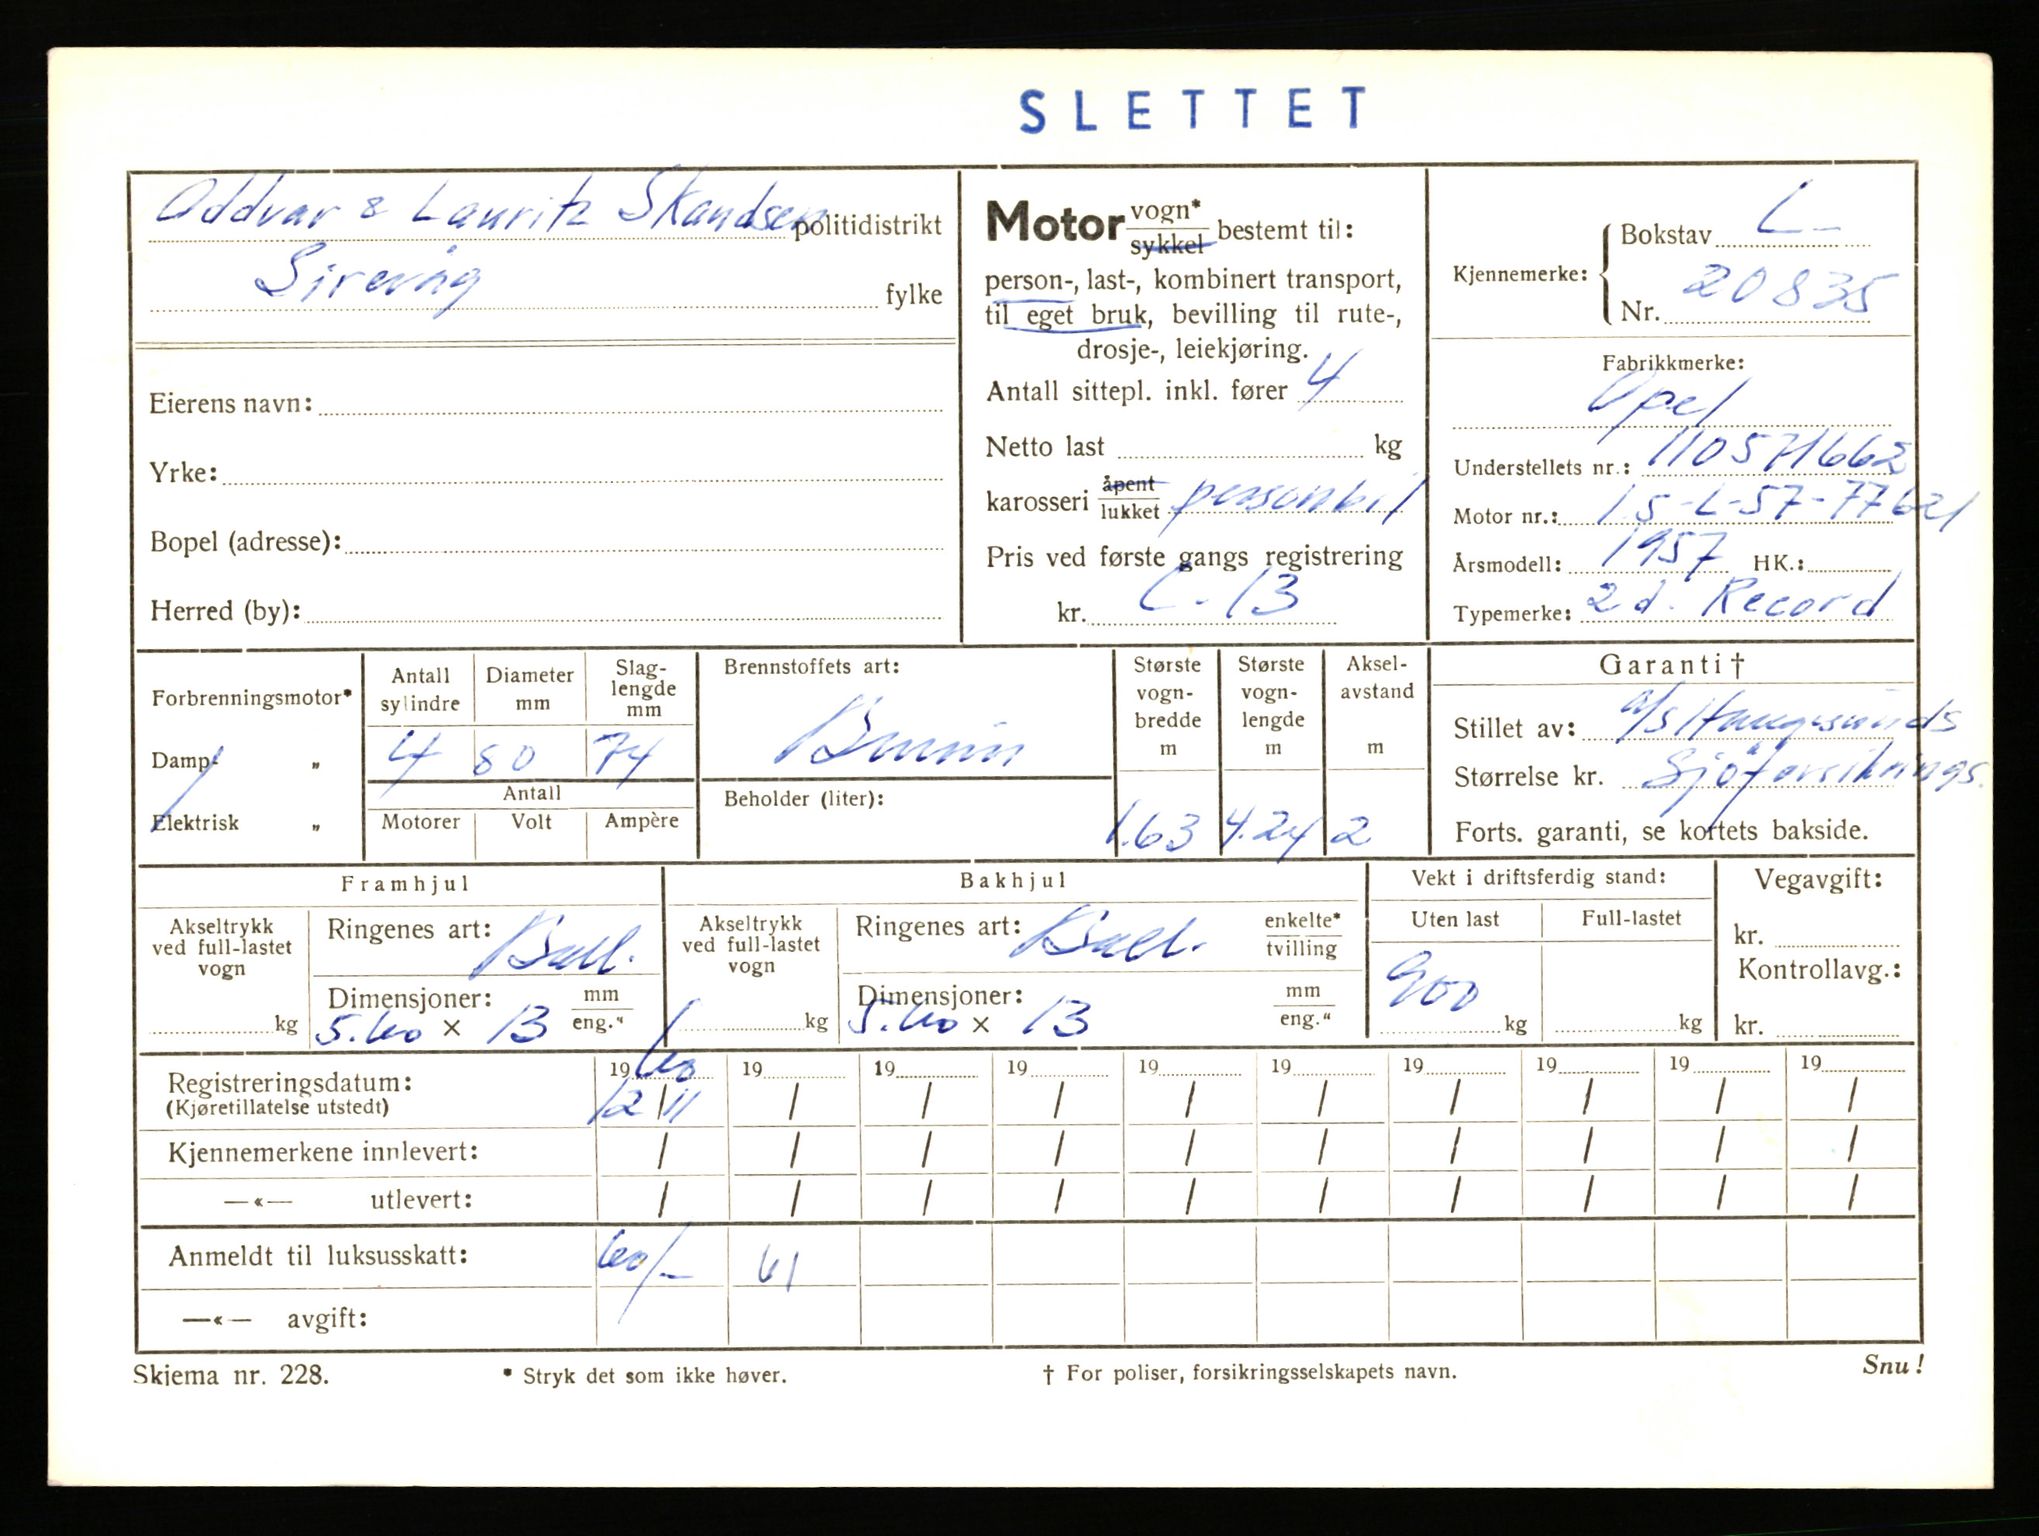 SLETTET
Oddvar & Lauritz Skandsen politidistrikt
Sirevåg fylke
Eierens navn:
Yrke:
Bopel (adresse):
Herred (by):
Motor vogn* sykkel bestemt til:
person-, last-, kombinert transport,
til eget bruk, bevilling til rute-,
drosje-, leiekjøring.
Antall sittepl. inkl. fører 4
Netto last kg
karosseri åpent lukket personbil
Pris ved første gangs registrering
kr. C-13
Kjennemerke: Bokstav L-
Nr. 20835
Fabrikkmerke:
Opel
Understellets nr.: 110571662
Motor nr.: 1.5-L-57-77621
Årsmodell: 1957 HK.:
Typemerke: 2 d. Record
Forbrenningsmotor*
Damp- „
Elektrisk „
Antall sylindre Diameter mm Slag-lengde mm
4 80 74
Antall
Motorer Volt Ampère
Brennstoffets art:
Bensin
Beholder (liter):
Største vogn-bredde m Største vogn-lengde m Aksel-avstand m
1.63 4.24 2
Garanti †
Stillet av: A/S Haugesunds
Størrelse kr. Sjøforsikrings.
Forts. garanti, se kortets bakside.
Framhjul
Akseltrykk ved full-lastet vogn
kg
Ringenes art: Ball.
Dimensjoner: mm eng.“
5.60 x 13
Bakhjul
Akseltrykk ved full-lastet vogn
kg
Ringenes art: Ball. enkelte* tvilling
Dimensjoner: mm eng.“
5.60 x 13
Vekt i driftsferdig stand:
Uten last Full-lastet
900 kg kg
Vegavgift:
kr.
Kontrollavg.:
kr.
Registreringsdatum: 1960 19 19 19 19 19 19 19 19 19
(Kjøretillatelse utstedt) 12/11 / / / / / / / / /
Kjennemerkene innlevert: / / / / / / / / / /
—«— utlevert: / / / / / / / / / /
Anmeldt til luksusskatt: 60/- 61
—«— avgift:
Skjema nr. 228. * Stryk det som ikke høver. † For poliser, forsikringsselskapets navn. Snu!